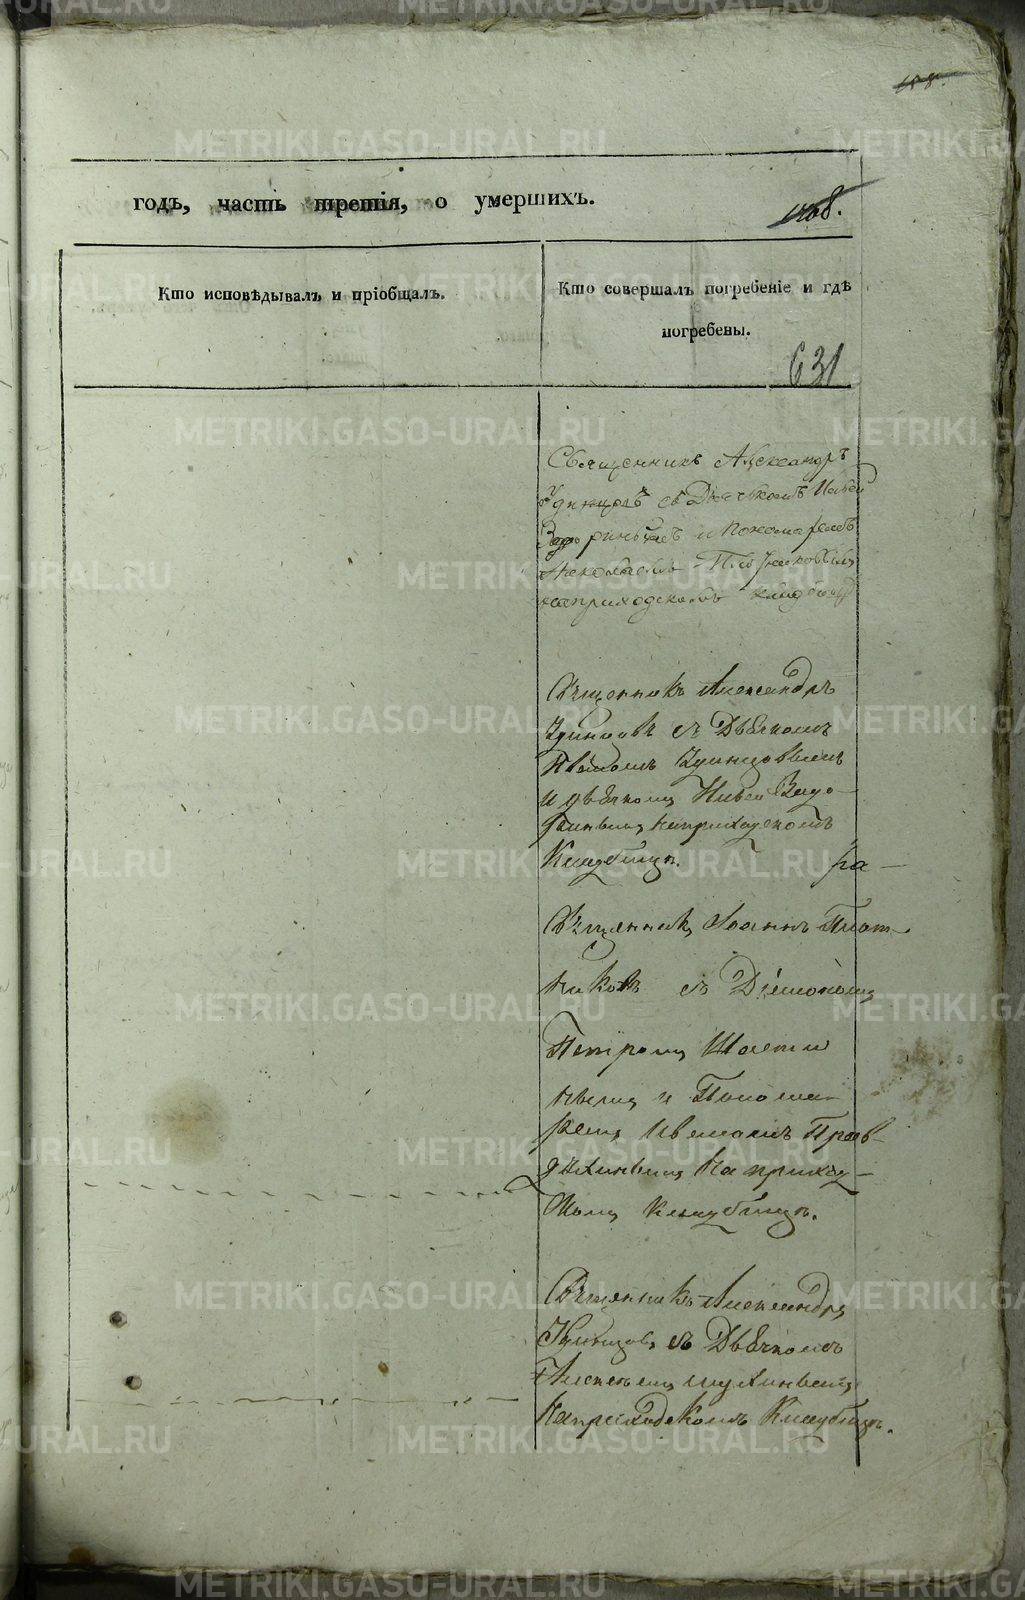 158.
годъ, часть третія, о умершихъ.
1768.
Кто исповѣдывалъ и пріобщалъ.
Кто совершалъ погребеніе и гдѣ
погребены.
631
Священникъ Александръ
Удинцовъ съ Дьячькомъ
и Пономаремъ
Николаемъ
наприходскомъ кладбищѣ
Священникъ Александръ
Удинцовъ съ Дьячкомъ
Иваномъ Удинцовымъ
и дьячкомъ
наприходскомъ
Кладбищѣ.
Священникъ Іоаннъ Плот-
никовъ съ Діакономъ
Петромъ
и Понома-
ремъ Иваномъ
на приход-
скомъ кладбищѣ.
Священникъ Александръ
Удинцовъ съ Дьячкомъ
Алексѣемъ
Наприходскомъ Кладбищѣ.
METRIKI.GASO-URAL.RU